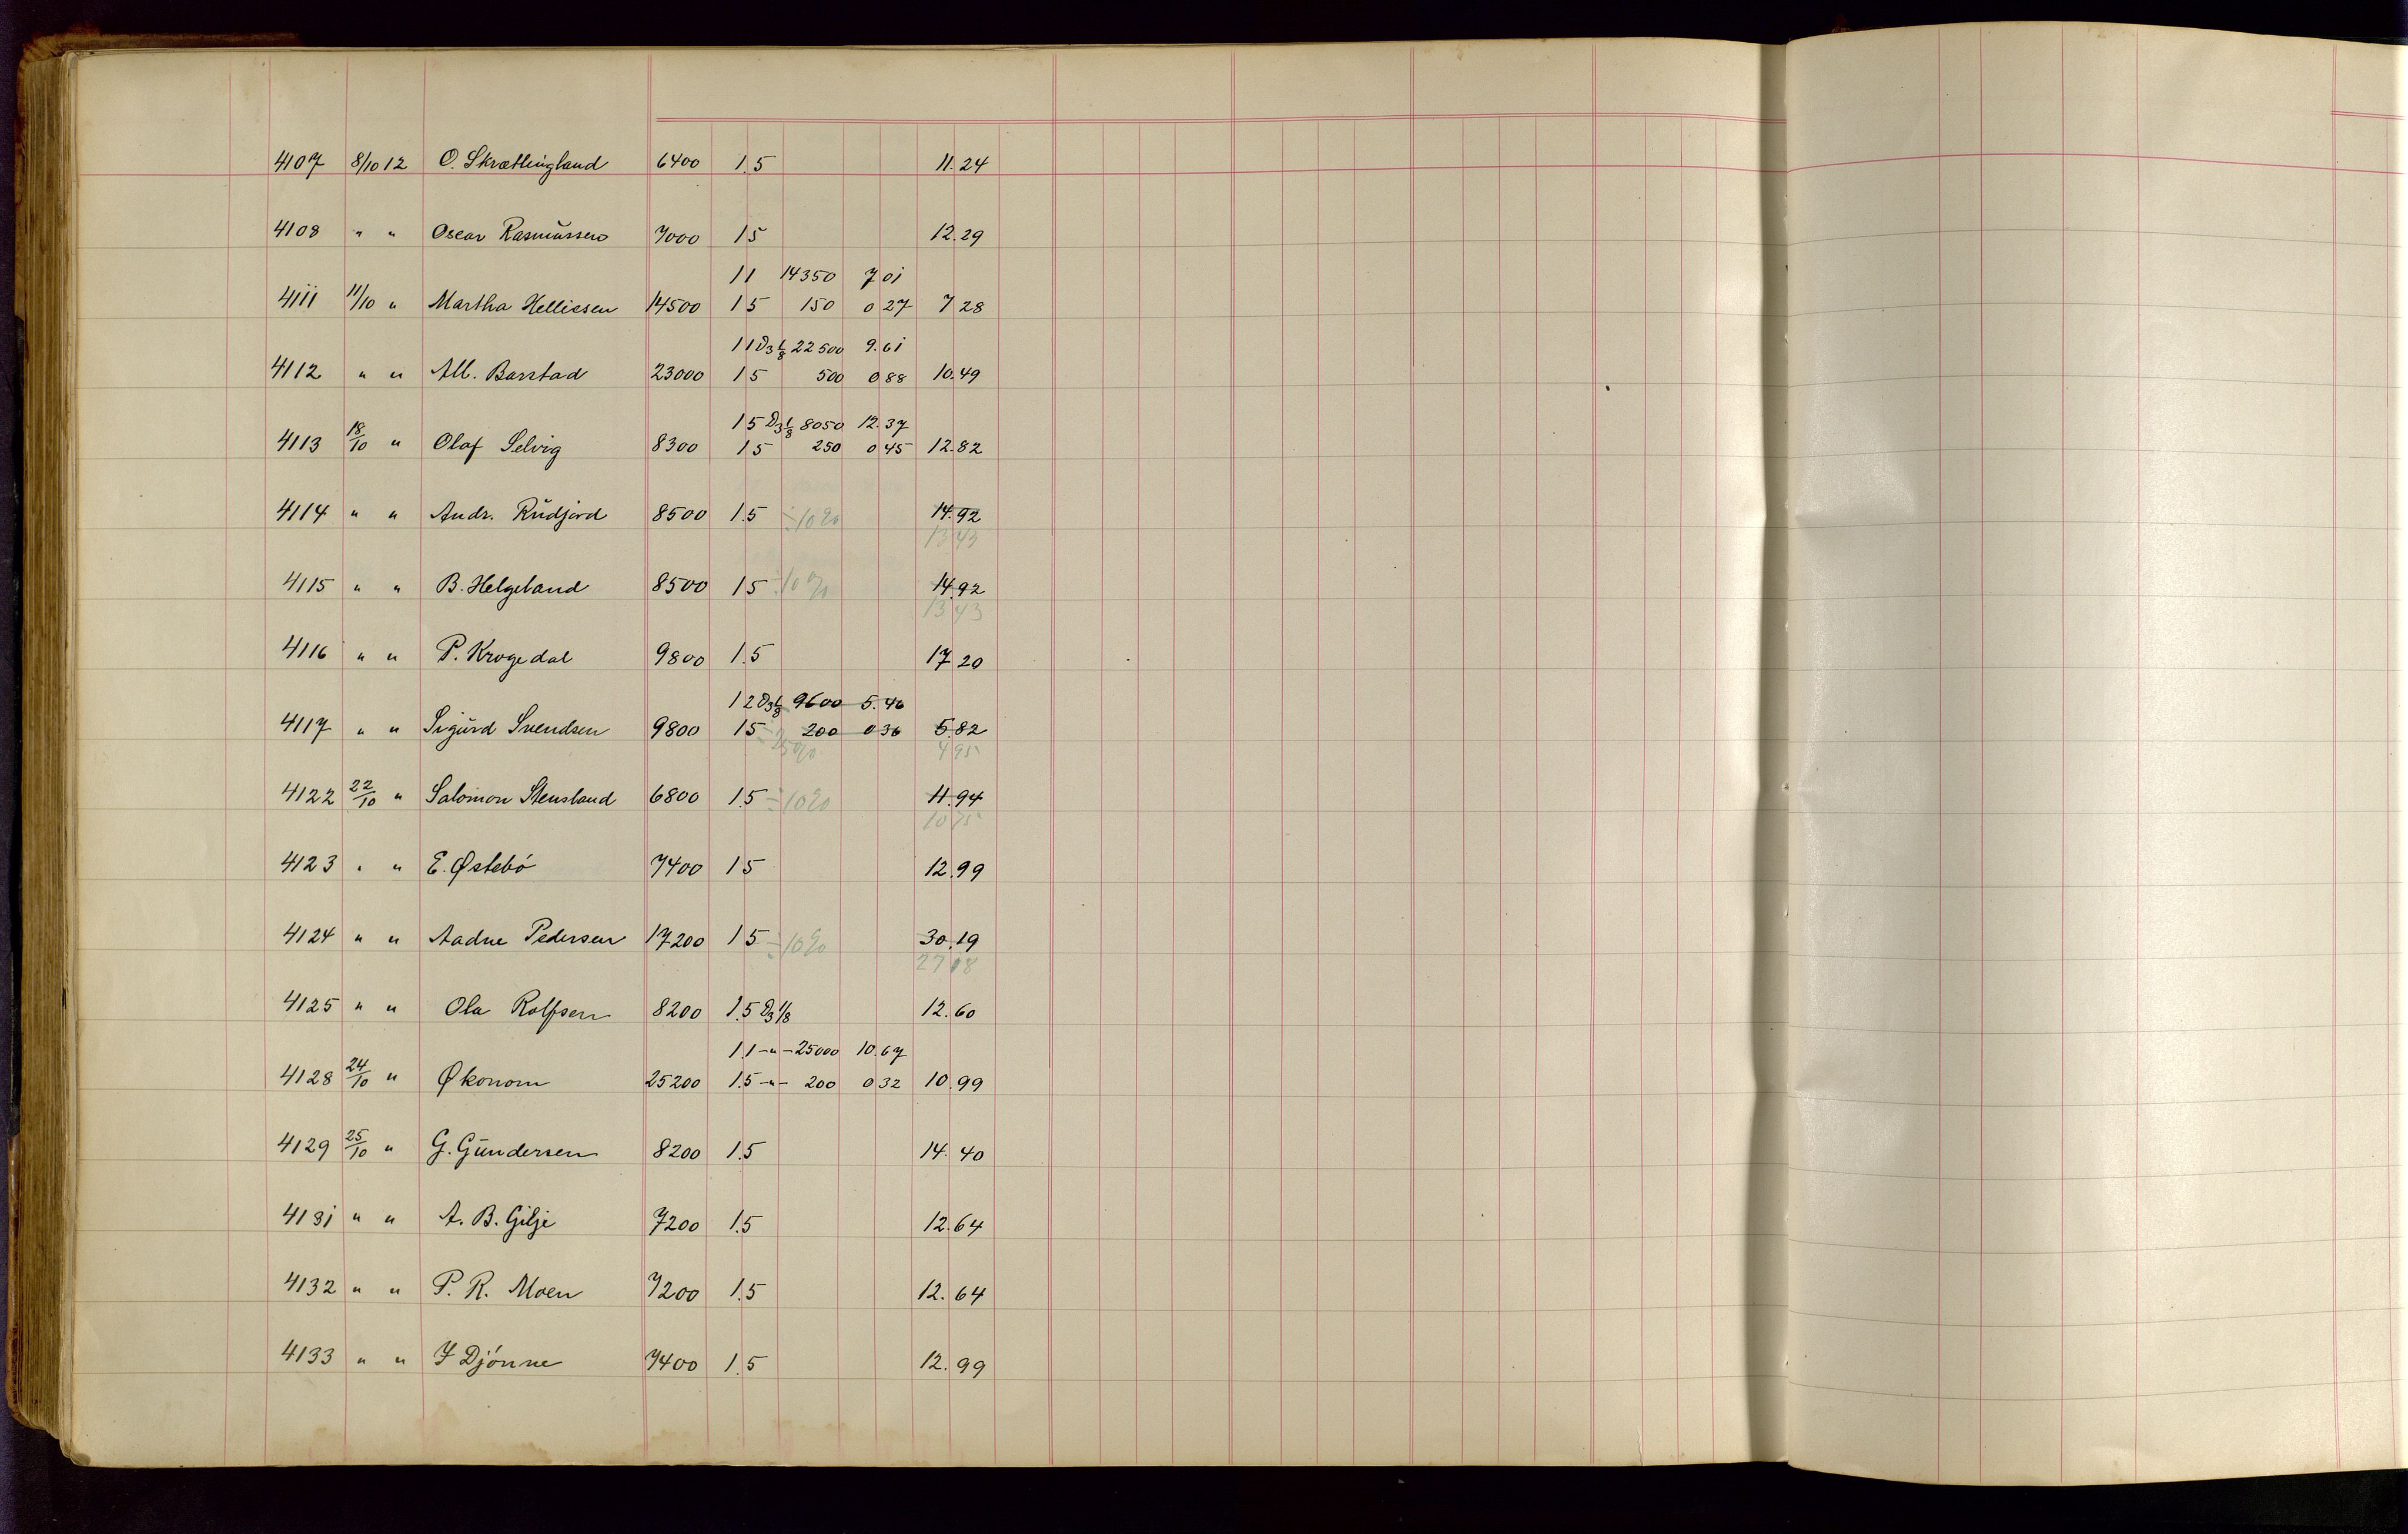 4107 8/10 12 O. Skrættingland 6400 1.5 11.24
4108 " " Oscar Rasmŭssen 7000 15 12.29
11 14350 7 01
4111 11/10 " Martha Helliesen 14500 15 150 0 27 7 28
11 D3 1/8 22500 9.61
4112 " " Alb. Barstad 23000 15 500 0 88 10.49
15 D3 1/8 8050 12.37
4113 18/10 " Olaf Selvig 8300 15 250 0 45 12.82
4114 " " Andr. Rŭdjord 8500 1.5 ÷10% 14.92
13 43
4115 " " B. Helgeland 8500 15 ÷10% 14.92
13 43
4116 " " P. Krogedal 9800 1.5 17 20
12 D3 1/8 9600 5.46
4117 " " Sigŭrd Svendsen 9800 15 200 0 36 5.82
÷15% 4 95
4122 22/10 " Salomon Stensland 6800 1.5 ÷10% 11.94
10 75
4123 " " E. Østebó 7400 15 12.99
4124 " " Aadne Pedersen 17200 15 ÷10% 30.19
27 18
4125 " " Ola Rolfsen 8200 1.5 D3 1/8 12.60
1.1 -"- 25000 10.67
4128 24/10 " Økonom 25200 1.5 -"- 200 0 32 10.99
4129 25/10 " G. Gŭndersen 8200 1.5 14.40
4131 " " A. B. Gilje 7200 1.5 12.64
4132 " " P. R. Moen 7200 1.5 12.64
4133 " " J Djónne 7400 1.5 12.99